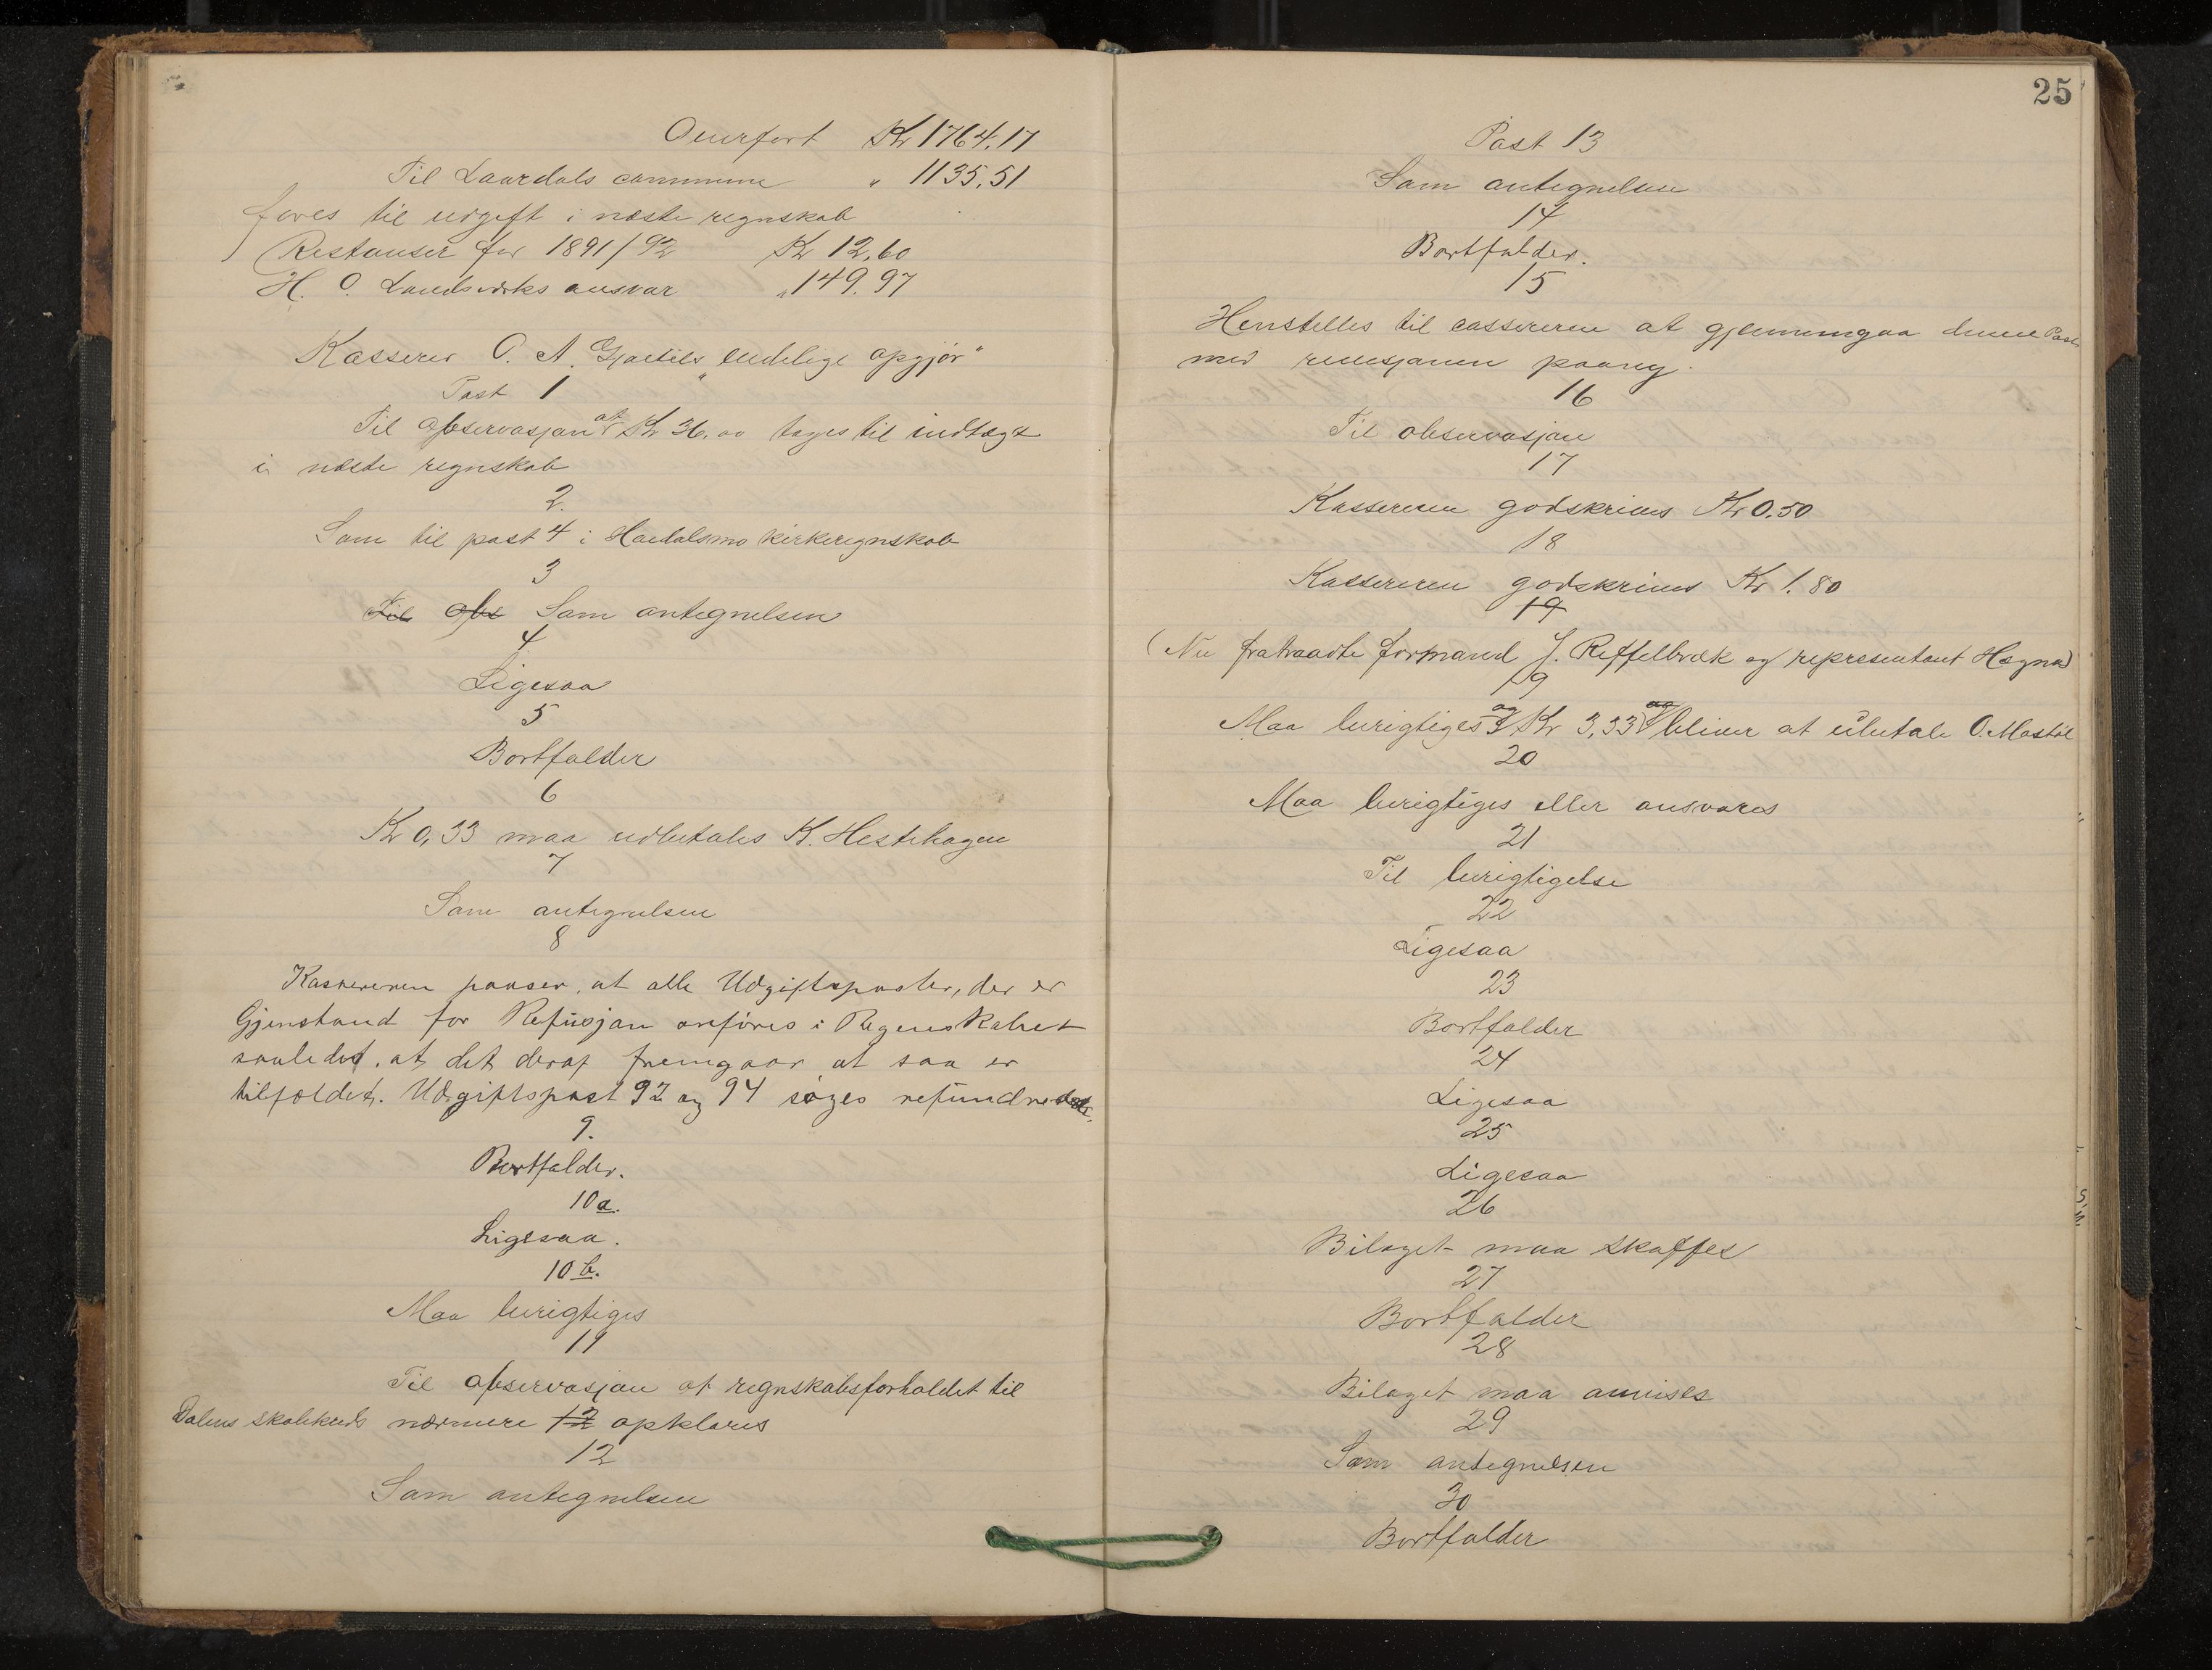 Overført Kr 1764.17
Til Laardals commune " 1135,51
føres til udgift i næste regnskab
Restanser for 1891/92 Kr 12,60
H. O. Landsverks ansvar " 149.97
Kasserer O. A. "endelige opgjør"
Post 1
Til observasjon at Kr 36,00 tages til indtægt
i næste regnskab
2.
Som til post 4 i Høidalsmo kirkeregnskab
3
Til obs Som antegnelsen
4
Ligesaa
5
Bortfalder
6
Kr 0,33 maa udbetales K. Hestehagen
7
Som antegnelsen
8
Kassereren paaser, at alle Udgiftsposter, der er
Gjenstand for Refusjon anføres i Regnskabet
saaledes, at det deraf fremgaar at saa er
tilfældet. Udgiftspost 92 og 94 søges refundret.
9.
Bortfalder.
10a.
Ligesaa.
10b.
Maa berigtiges
11
Til observasjon at regnskabsforholdet til
Dalens skolekreds nærmere 12 opklares
12
Som antegnelsen
25
Post 13
Som antegnelsen
14
Bortfalder.
15
Henstilles til cassereren at gjennemgaa denne Post
med revisjonen paany.
16
Til observasjon
17
Kassereren godskrives Kr 0.50
18
Kassereren godskrives Kr 1.80
19
(Nu fratraadte formand J. Reffelbræk og representant Hegna)
19
Maa berigtiges og Kr 3,33 bliver at udbetale O. Mostøl
20
Maa berigtiges eller ansvares
21
Til berigtigelse
22
Ligesaa
23
Bortfalder
24
Ligesaa
25
Ligesaa
26
Bilaget maa skaffes
27
Bortfalder
28
Bilaget maa anvises
29
Som antegnelsen
30
Bortfalder